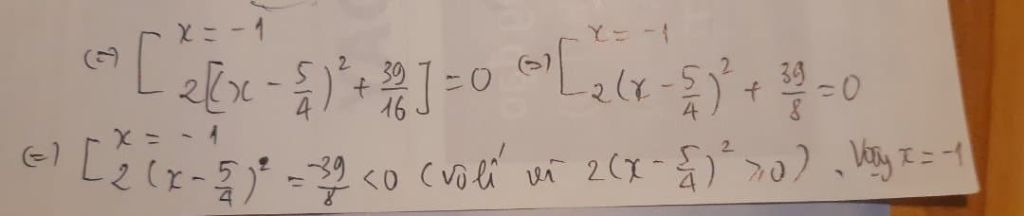 (=) [ x = -1
2[(x - 5/4)² + 39/16] = 0 (=) [ x = -1
2(x - 5/4)² + 39/8 = 0
(=) [ x = -1
2(x - 5/4)² = -39/8 < 0 (vô lí vì 2(x - 5/4)² ≥ 0). Vậy x = -1